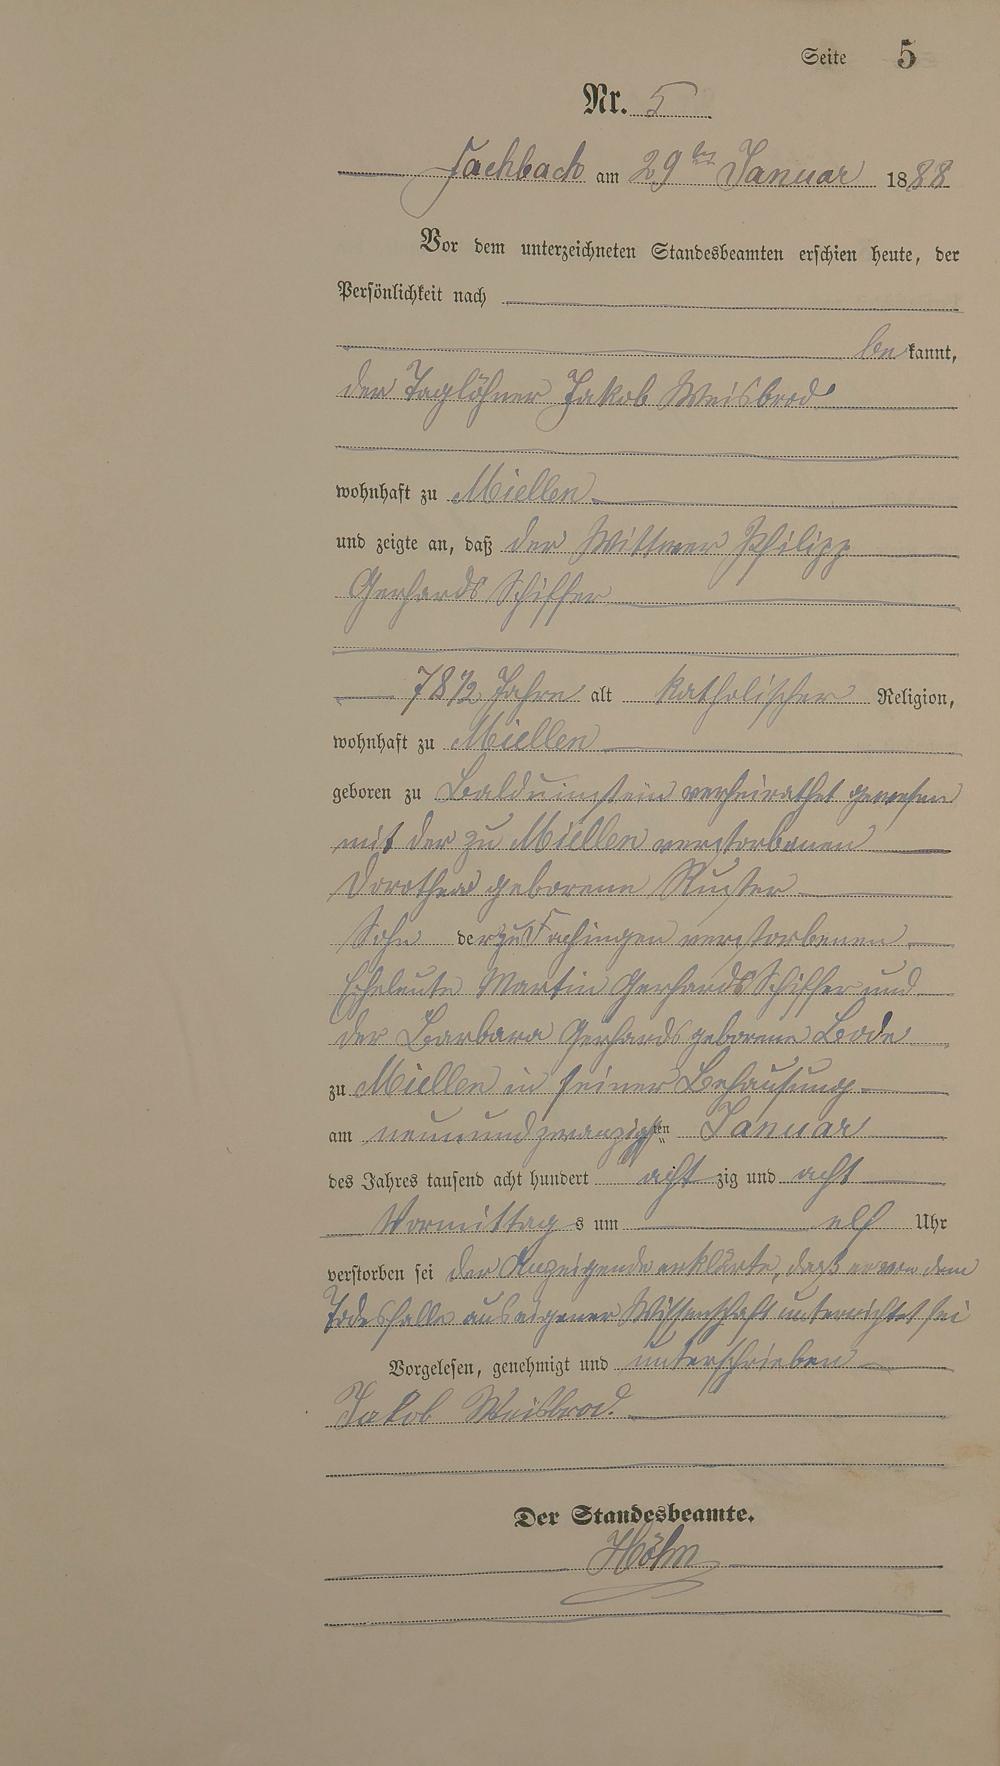 Seite 5
Nr. 5
Fachbach am 29ten Januar 1888
Vor dem unterzeichneten Standesbeamten erschien heute, der
Persönlichkeit nach
bekannt,
der Taglöhner Jakob Weisbrod
wohnhaft zu Miellen
und zeigte an, daß der Wittwer Philipp
Gerhards Schiffer
78 1/2 Jahre alt katholischer Religion,
wohnhaft zu Miellen
geboren zu Balduinstein verheirathet gewesen
mit der zu Miellen verstorbenen
Dorothea geborene
Sohn der zu Fachingen verstorbenen
Eheleute Martin Gerhards Schiffer und
der Barbara Gerhards geborene Bode
zu Miellen in seiner Behausung
am neunundzwanzigsten Januar
des Jahres tausend acht hundert achtzig und acht
Vormittags um elf Uhr
verstorben sei der Anzeigende erklärte, daß er von dem
Todesfalle aus eigener Wissenschaft unterrichtet sei
Vorgelesen, genehmigt und unterschrieben
Jakob Weisbrod.
Der Standesbeamte.
Höhn